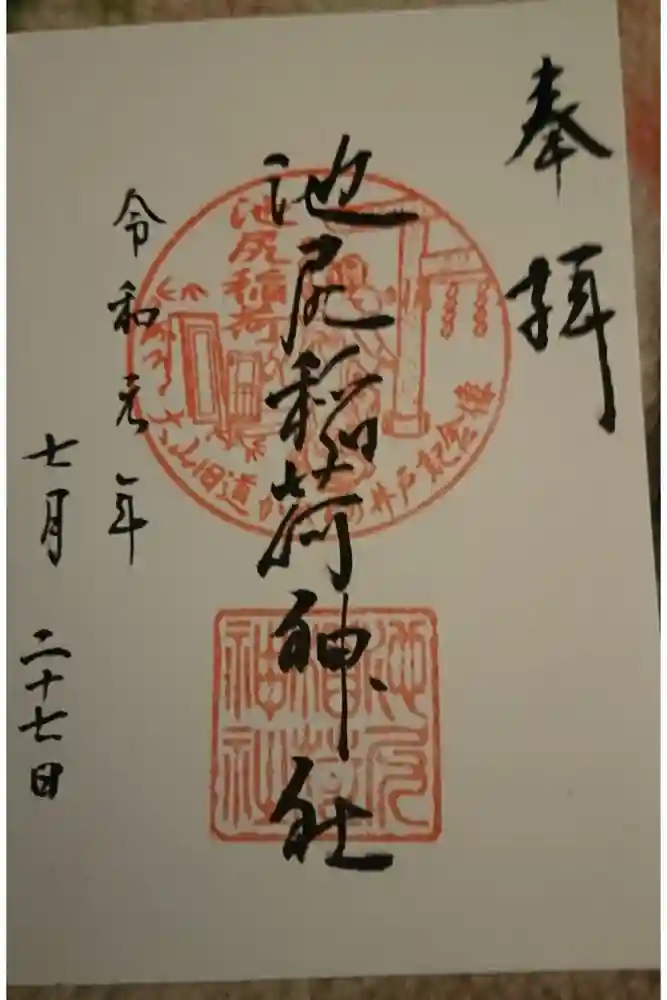 奉拝
池尻稲荷神社
令和元年
七月二十七日
池尻稲荷
大山旧道
の井戸記念像
池尻稲荷神社